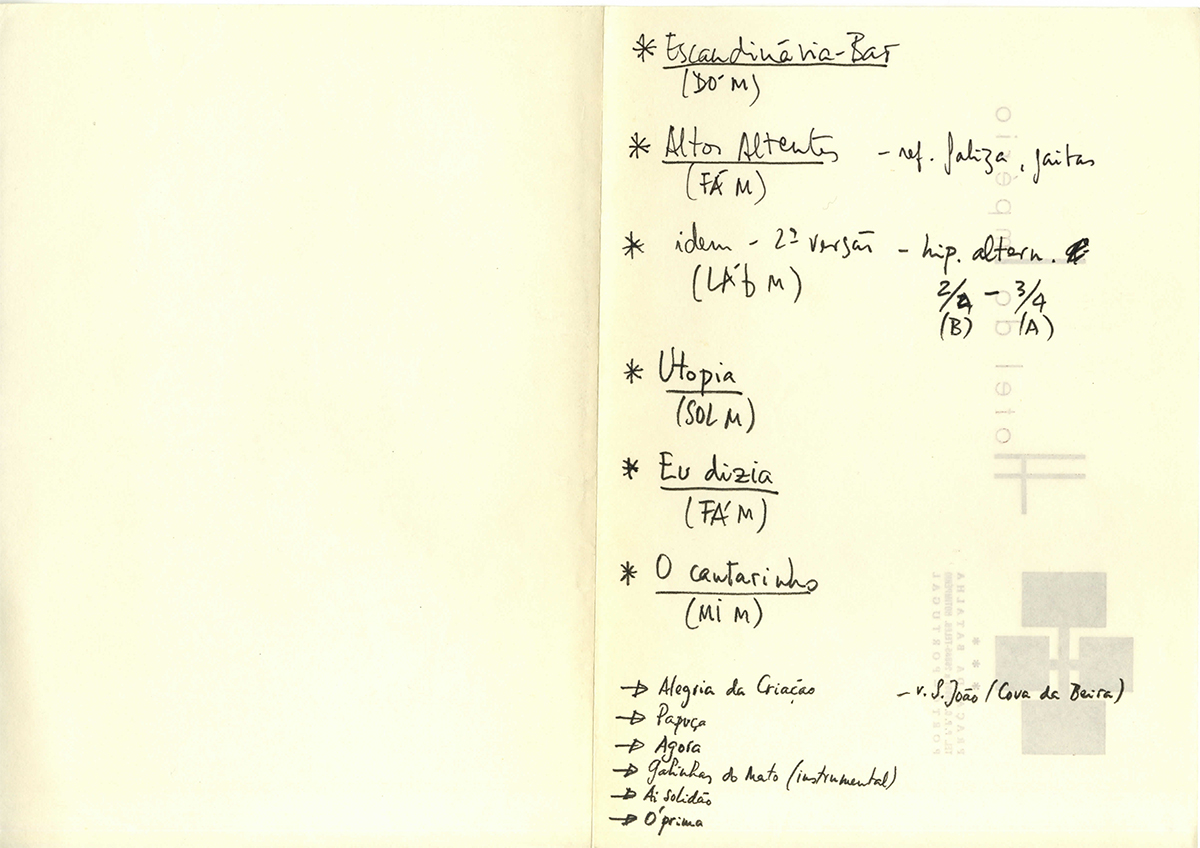 * Escandinávia-Bar
(DÓ M)
* Altos Altentes - ref. Galiza, gaitas
(FÁ M)
* idem - 2ª versão - hip. altern.
(LÁ b M) 2/4 - 3/4
(B) (A)
* Utopia
(SOL M)
* Eu dizia
(FÁ M)
* O cantarinho
(MI M)
→ Alegria da Criação - v. S. João (Cova da Beira)
→ Papuça
→ Agora
→ Galinhas do Mato (instrumental)
→ Ai solidão
→ Ó prima
Hotel do Império
PRAÇA DA BATALHA
PORTO PORTUGAL